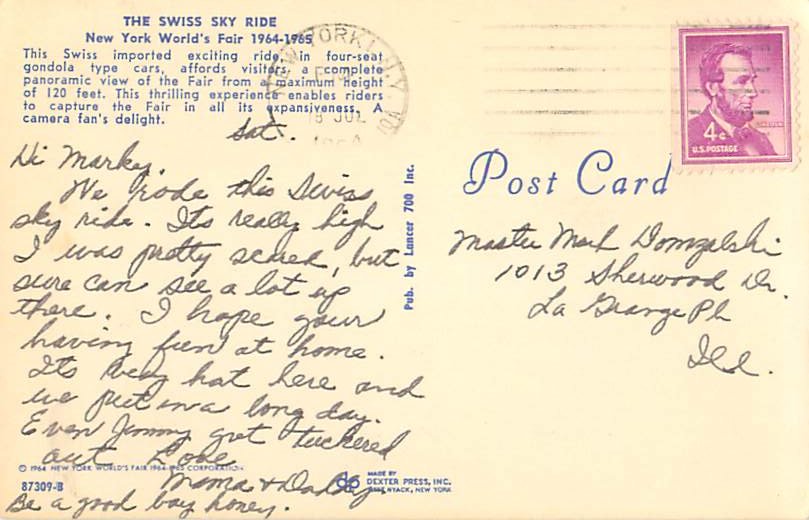 THE SWISS SKY RIDE
New York World's Fair 1964-1965
This Swiss imported exciting ride, in four-seat
gondola type cars, affords visitors a complete
panoramic view of the Fair from a maximum height
of 120 feet. This thrilling experience enables riders
to capture the Fair in all its expansiveness. A
camera fan's delight.
Sat.
Hi Markey,
We rode this Swiss
sky ride. Its really high
I was pretty scared, but
sure can see a lot up
there. I hope your
having fun at home.
Its very hot here and
we put in a long day.
Even Jimmy got tuckered
out Love
Mama + Daddy
Be a good boy honey.
© 1964 NEW YORK WORLD'S FAIR 1964-1965 CORPORATION
87309-B
Pub. by Lancer 700 Inc.
MADE BY
DEXTER PRESS, INC.
WEST NYACK, NEW YORK
NEW YORK 1, N.Y.
18 JUL
1964
4¢
U.S. POSTAGE
LINCOLN
Post Card
Master Mark Domzalski
1013 Sherwood Dr.
La Grange Pk
Ill.